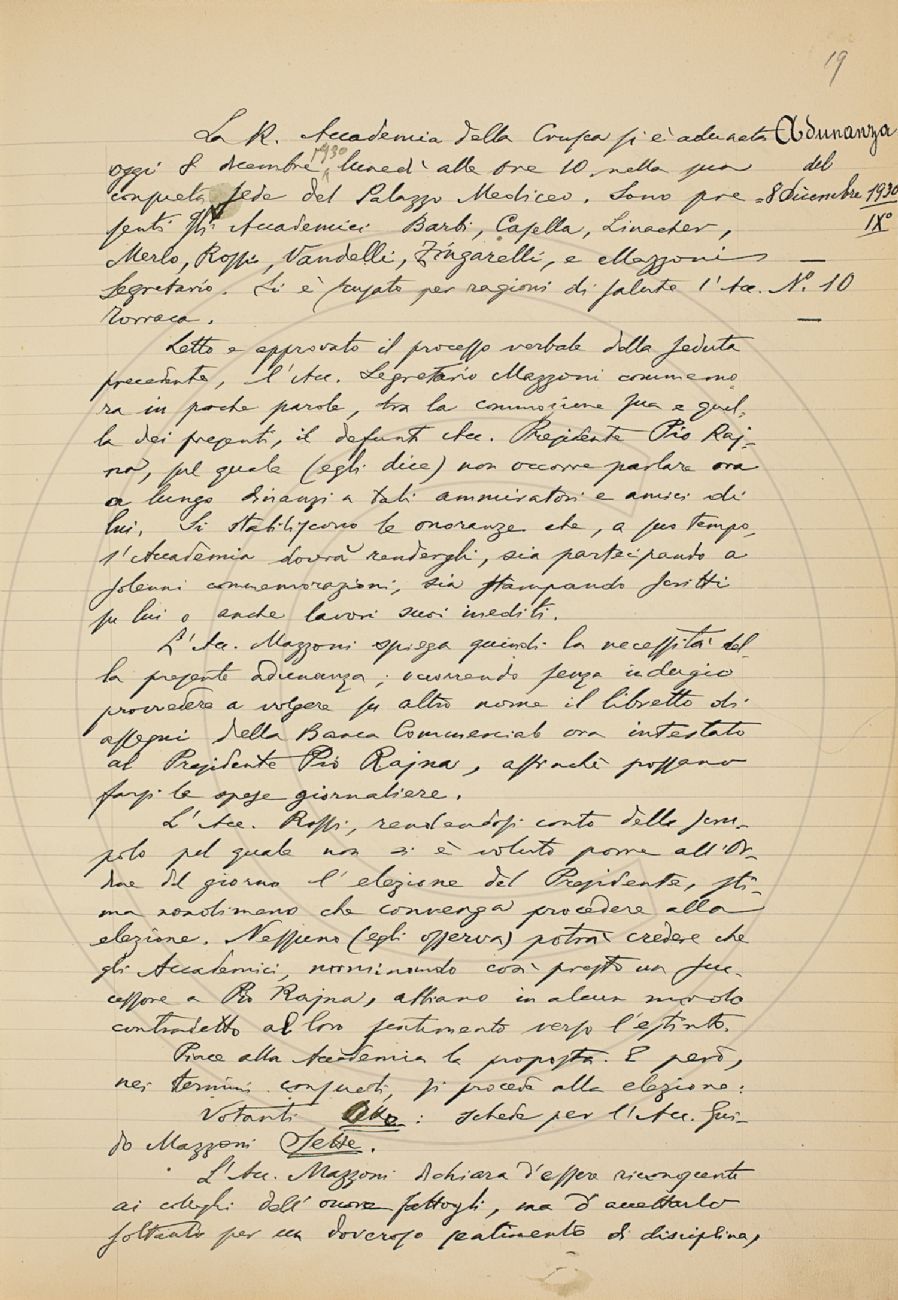 19
La R. Accademia della Crusca si è adunata
Adunanza
oggi 8 dicembre 1930 lunedì alle ore 10 nella sua
del
consueta sede del Palazzo Mediceo. Sono pre=
8 Dicembre 1930
senti gli Accademici Barbi, Casella, Linacher,
IXº
Merlo, Rossi, Vandelli, Zingarelli, e Mazzoni
Segretario. Si è scusato per ragioni di salute l'Acc.
Nº. 10
Torraca.
Letto e approvato il processo verbale della seduta
precedente, l'Acc. Segretario Mazzoni commemo=
ra in poche parole, tra la commozione sua e quel=
la dei presenti, il defunto Acc. Presidente Pio Raj=
na, sul quale (egli dice) non occorre parlare ora
a lungo dinanzi a tali ammiratori e amici di
lui. Si stabiliscono le onoranze che, a suo tempo,
l'Accademia dovrà rendergli, sia partecipando a
solenni commemorazioni, sia stampando scritti
su lui o anche lavori suoi inediti.
L'Acc. Mazzoni spiega quindi la necessità del=
la presente adunanza; occorrendo senza indugio
provvedere a volgere su altro nome il libretto di
assegni della Banca Commerciale ora intestato
al Presidente Pio Rajna, affinchè possano
farsi le spese giornaliere.
L'Acc. Rossi, rendendosi conto dello scru=
polo pel quale non si è voluto porre all'Or=
dine del giorno l'elezione del Presidente, sti=
ma nondimeno che convenga procedere alla
elezione. Nessuno (egli osserva) potrà credere che
gli Accademici, nominando così presto un suc=
cessore a Pio Rajna, abbiano in alcun modo
contradetto al loro sentimento verso l'estinto.
Piace alla Accademia la proposta. E però,
nei termini consueti, si procede alla elezione:
Votanti Otto: schede per l'Acc. Gui=
do Mazzoni Sette.
L'Acc. Mazzoni dichiara d'essere riconoscente
ai colleghi dell'onore fattogli, ma d'accettarlo
soltanto per un doveroso sentimento di disciplina,